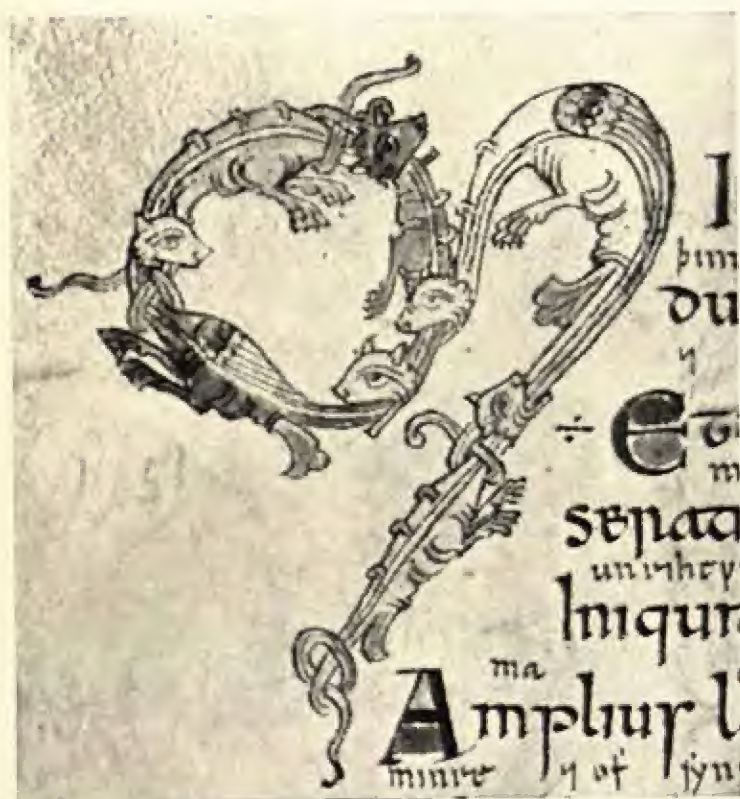 I
þin
du
⁊
÷ Et
m
serati
unrihtƿ
Iniqui
ma
Amplius l
minre ⁊ of syn